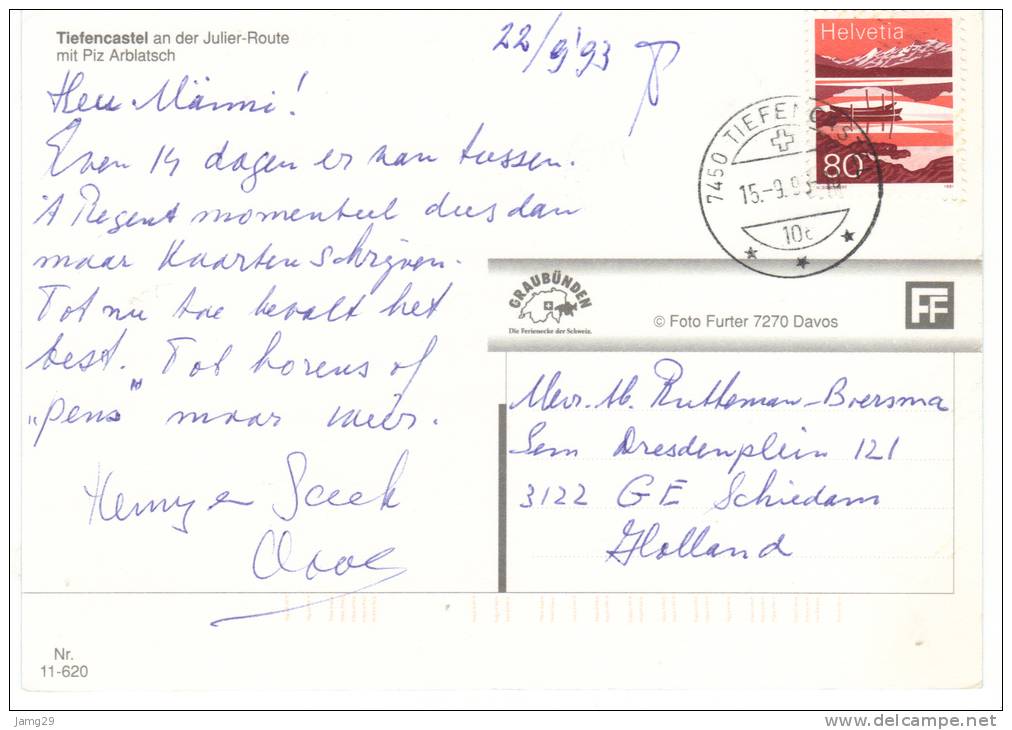 Tiefencastel an der Julier-Route
mit Piz Arblatsch
22/9'93
Helvetia
80
7450 TIEFENCAST
15.-9.93
10c
Heu Männi!
Even 14 dagen er van tussen.
't Regent momenteel dus dan
maar kaarten schrijven.
Tot nu toe bevalt het
best. Tot horens of
„pens" maar weer.
Henny en Sceek
GRAUBÜNDEN
Die Ferienecke der Schweiz.
© Foto Furter 7270 Davos
FF
Mevr. M. Rutteman-Boersma
Sem Dresdenplein 121
3122 GE Schiedam
Holland
Nr.
11-620
Jamg29
www.delcampe.net